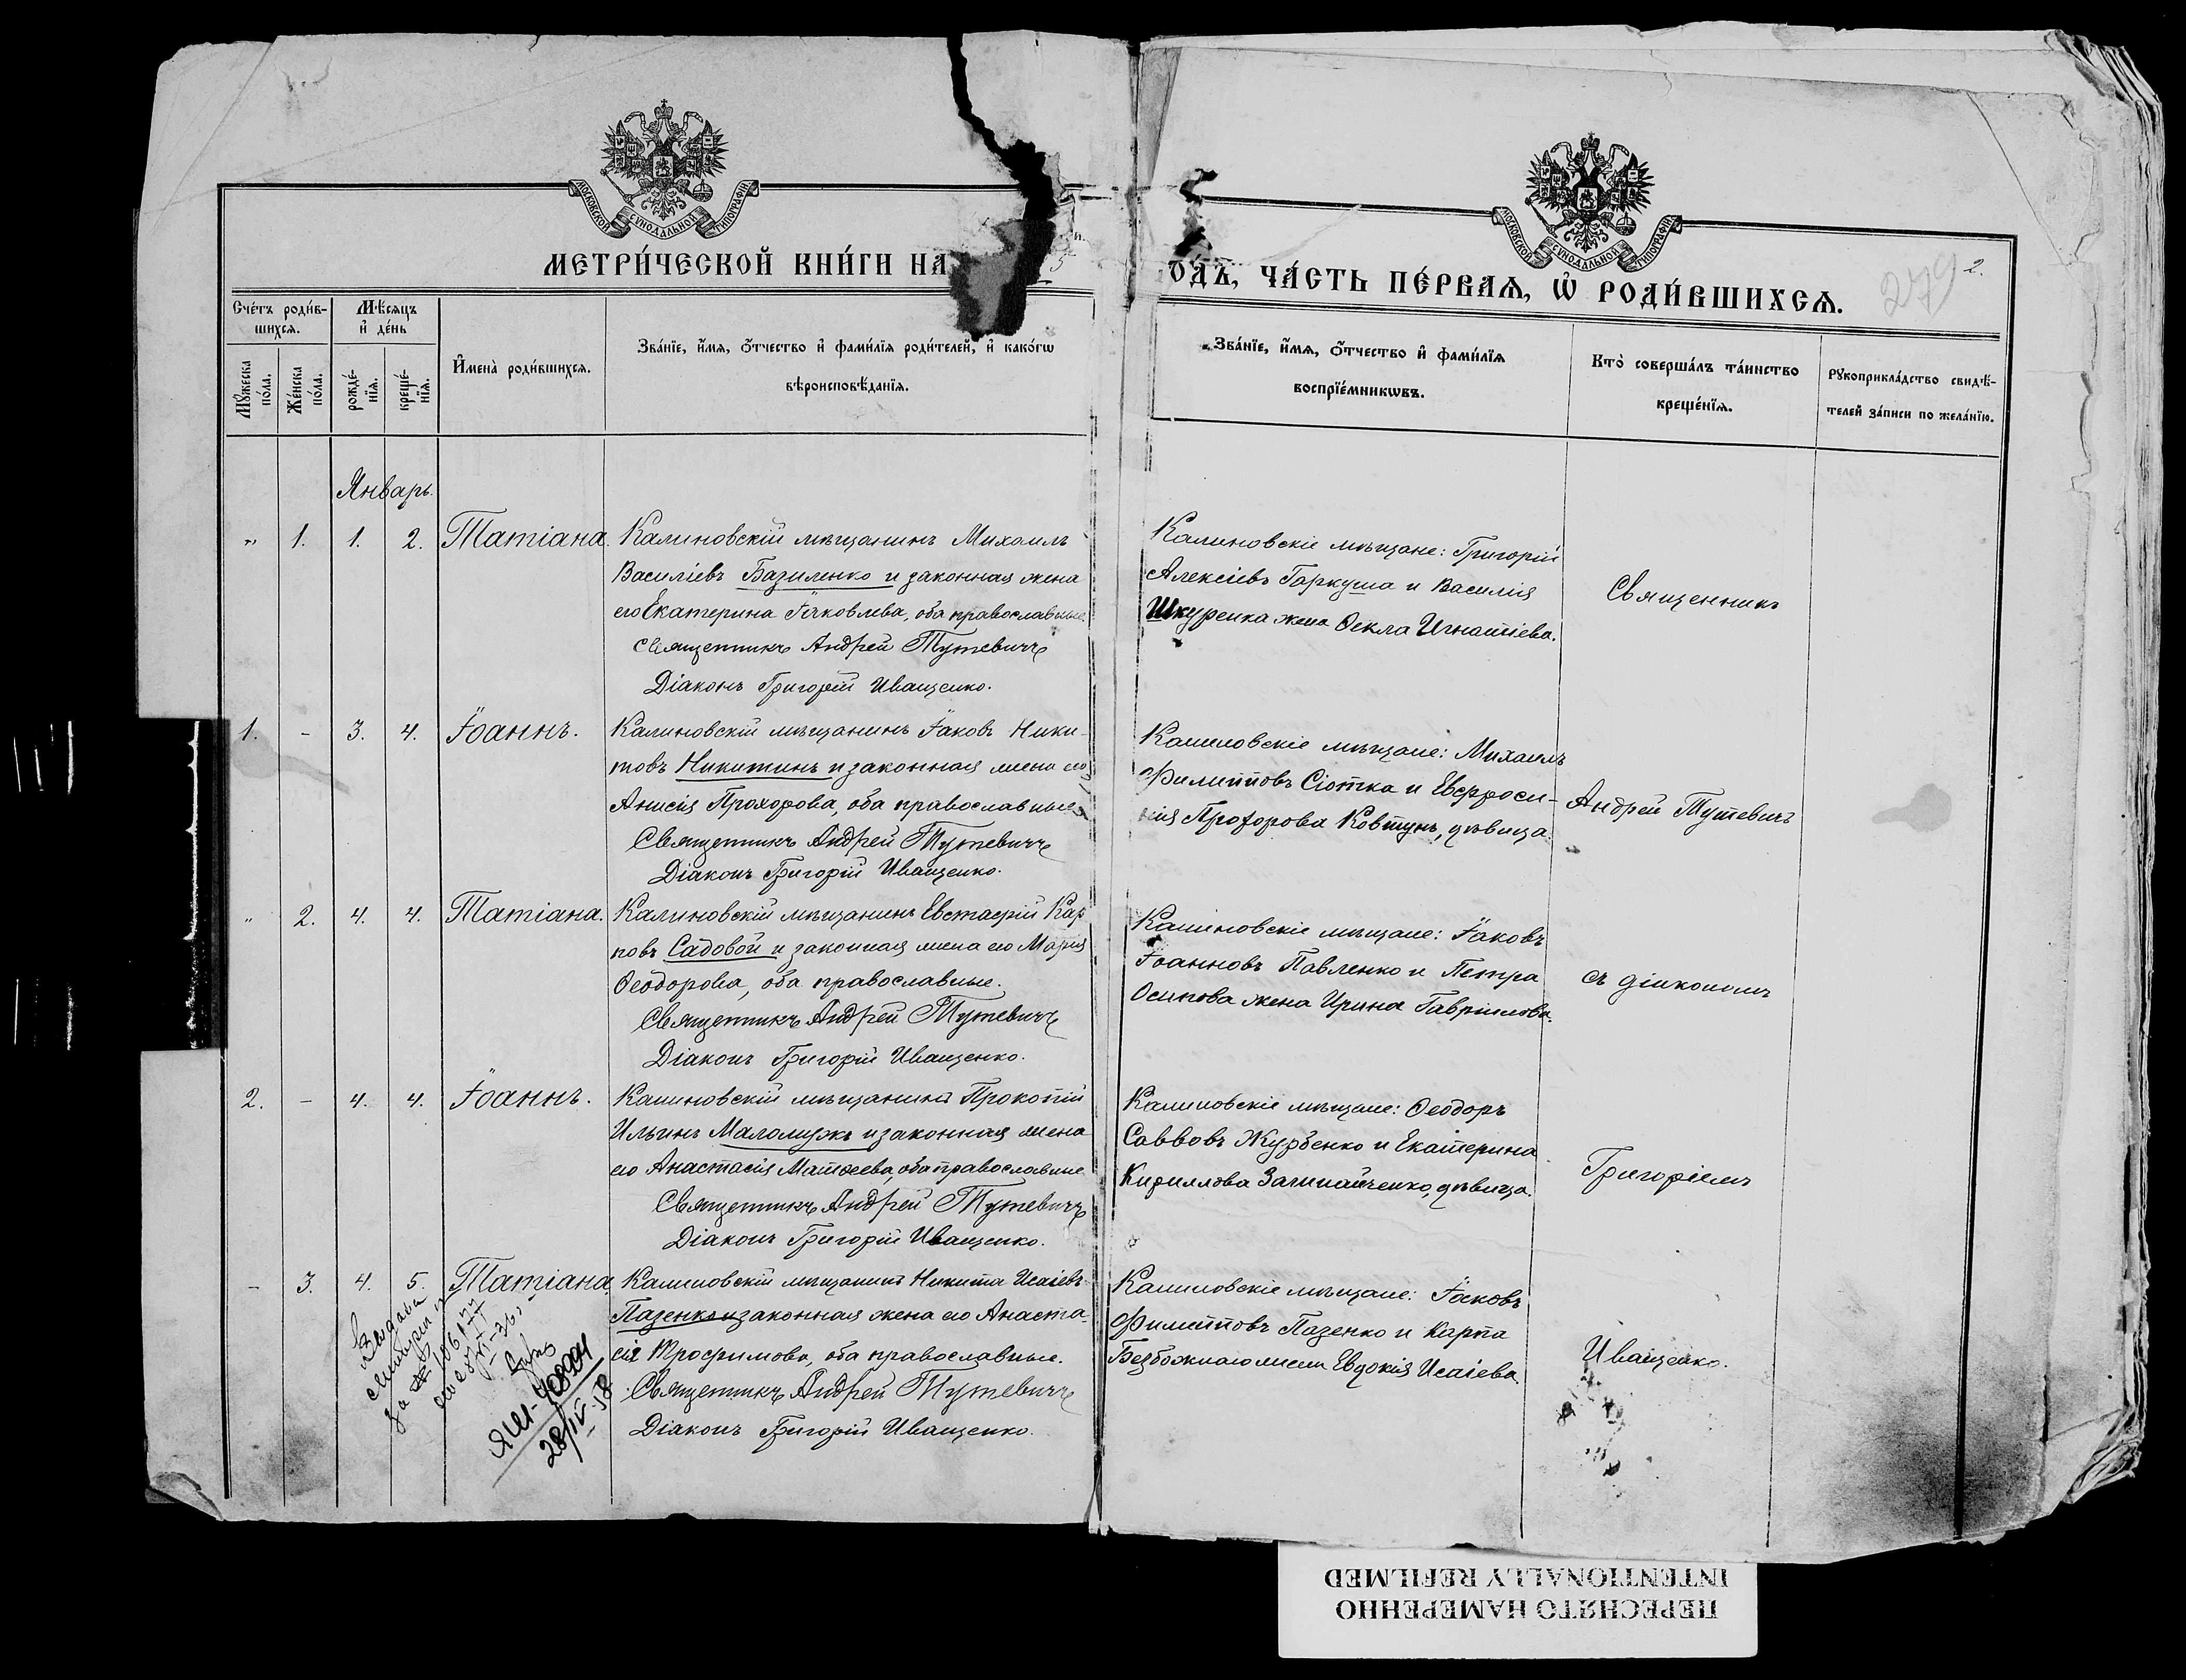 МОСКОВСКОЙ СѴНОДАЛЬНОЙ ТИПОГРАФІИ
МОСКОВСКОЙ СѴНОДАЛЬНОЙ ТИПОГРАФІИ
МЕТРИ́ЧЕСКОЙ КНИ́ГИ НА 5
О́ДЪ, ЧА́СТЬ ПЕ́РВАѦ, Ѡ҆ РОДИ́ВШИХСѦ.
279 2.
Сче́тъ роди́в-
шихсѧ.
Мꙋ́жеска
по́ла.
Же́нска
по́ла.
Мѣ́сѧцъ
и҆ де́нь
рожде́-
нїѧ.
креще́-
нїѧ.
И҆мена̀ роди́вшихсѧ.
Зва́нїе, и҆́мѧ, ѻ҆́тчество и҆ фами́лїѧ роди́телей, и҆ како́гѡ
вѣроисповѣ́данїѧ.
Зва́нїе, и҆́мѧ, ѻ҆́тчество и҆ фами́лїѧ
воспрїе́мникѡвъ.
Кто̀ соверша́лъ та́инство
креще́нїѧ.
Рꙋкоприкла́дство свидѣ́-
телей за́писи по жела́нїю.
Январь.
" 1. 1. 2. Татіана.
Калиновскій мѣщанинъ Михаилъ
Василіевъ Базиленко и законная жена
его Екатерина Іаковлева, оба православные.
Священникъ Андрей Тутевичъ
Діаконъ Григорій Иващенко.
Калиновскіе мѣщане: Григорій
Алексіевъ Гаркуша и Василія
Шкуренка жена Ѳекла Игнатіева.
Священникъ
1. - 3. 4. Іоаннъ.
Калиновскій мѣщанинъ Іаковъ Ники-
товъ Никитинъ и законная жена его
Анисія Прохорова, оба православные
Священникъ Андрей Тутевичъ
Діаконъ Григорій Иващенко.
Калиновскіе мѣщане: Михаилъ
Филипповъ Сіотка и Евфроси-
нія Прохорова Ковтунъ, дѣвица.
Андрей Тутевичъ
" 2. 4. 4. Татіана.
Калиновскій мѣщанинъ Евстафій Кар
повъ Садовой и законная жена его Марія
Ѳеодорова, оба православные.
Священникъ Андрей Тутевичъ
Діаконъ Григорій Иващенко.
Калиновскіе мѣщане: Іаковъ
Іоанновъ Павленко и Петра
Осипова жена Ирина Гавриилова.
съ діакономъ
2. - 4. 4. Іоаннъ.
Калиновскій мѣщанинъ Прокопій
Ильинъ Маломужъ и законная жена
его Анастасія Матѳеева, оба православные
Священникъ Андрей Тутевичъ
Діаконъ Григорій Иващенко.
Калиновскіе мѣщане: Ѳеодоръ
Саввовъ Журбенко и Екатерина
Кириллова дѣвица.
Григоріемъ
- 3. 4. 5. Татіана
Калиновскій мѣщанинъ Никита Исаіевъ
Пазенко и законная жена его Анаста-
сія Трофимова, оба православные.
Священникъ Андрей Тутевичъ
Діаконъ Григорій Иващенко.
Калиновскіе мѣщане: Іаковъ
Филипповъ Пазенко и Карпа
Безбожнаго жена Евдокія Исаіева.
Иващенко.
28/IV-58
ПЕРЕСНЯТО НАМЕРЕННО
INTENTIONALLY REFILMED